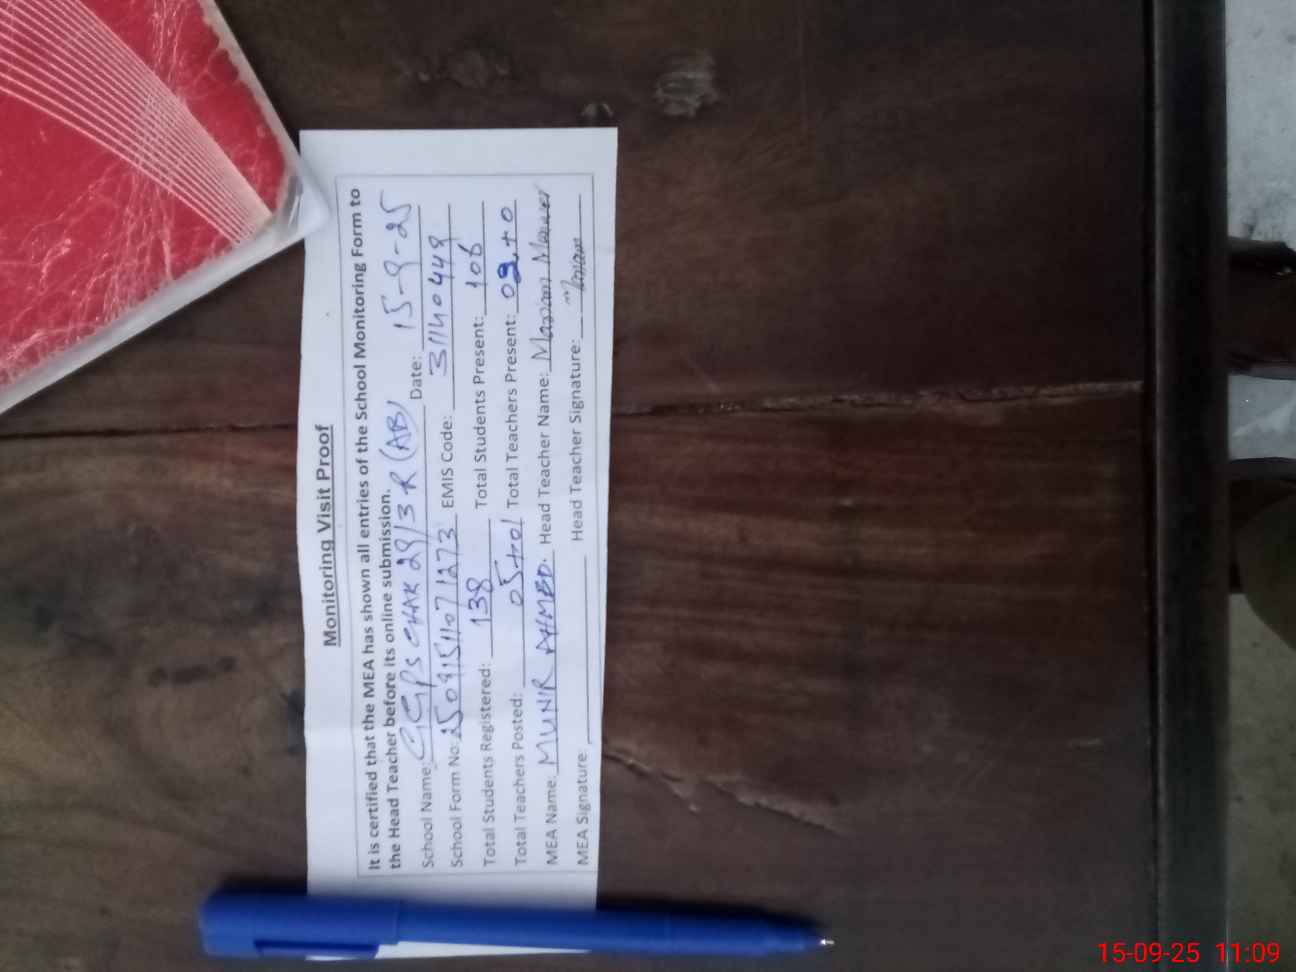 Monitoring Visit Proof
It is certified that the MEA has shown all entries of the School Monitoring Form to
the Head Teacher before its online submission.
School Name: GGPS CHAK 28/3-R (AB) Date: 15-9-25
School Form No: EMIS Code: 31140449
Total Students Registered: 138 Total Students Present: 106
Total Teachers Posted: 05+01 Total Teachers Present: +0
MEA Name: MUNIR AHMED. Head Teacher Name:
MEA Signature: Head Teacher Signature:
15-09-25 11:09